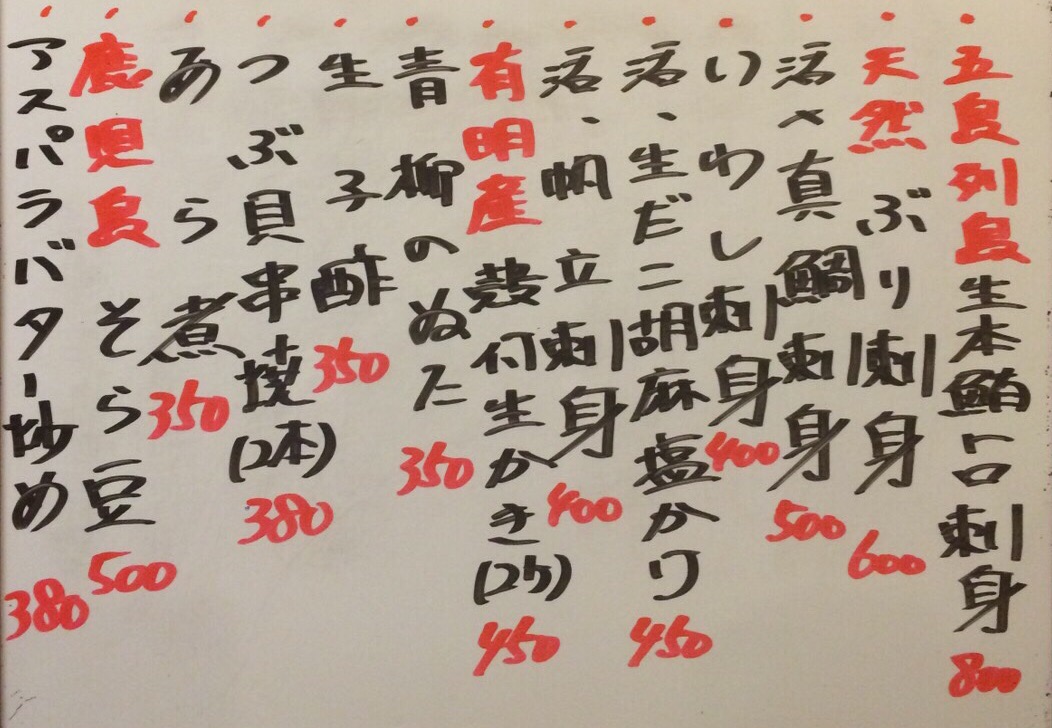 五島列島生本鮪トロ刺身 800
天然ぶり刺身 600
活〆真鯛刺身 500
いわし刺身 400
活、生だこ胡麻塩かけ 450
活、帆立刺身 400
有明産殻付生かき(2ケ) 450
青柳のぬた 350
生子酢 350
つぶ貝串焼(2本) 380
あら煮 350
鹿児島そら豆 500
アスパラバター炒め 380